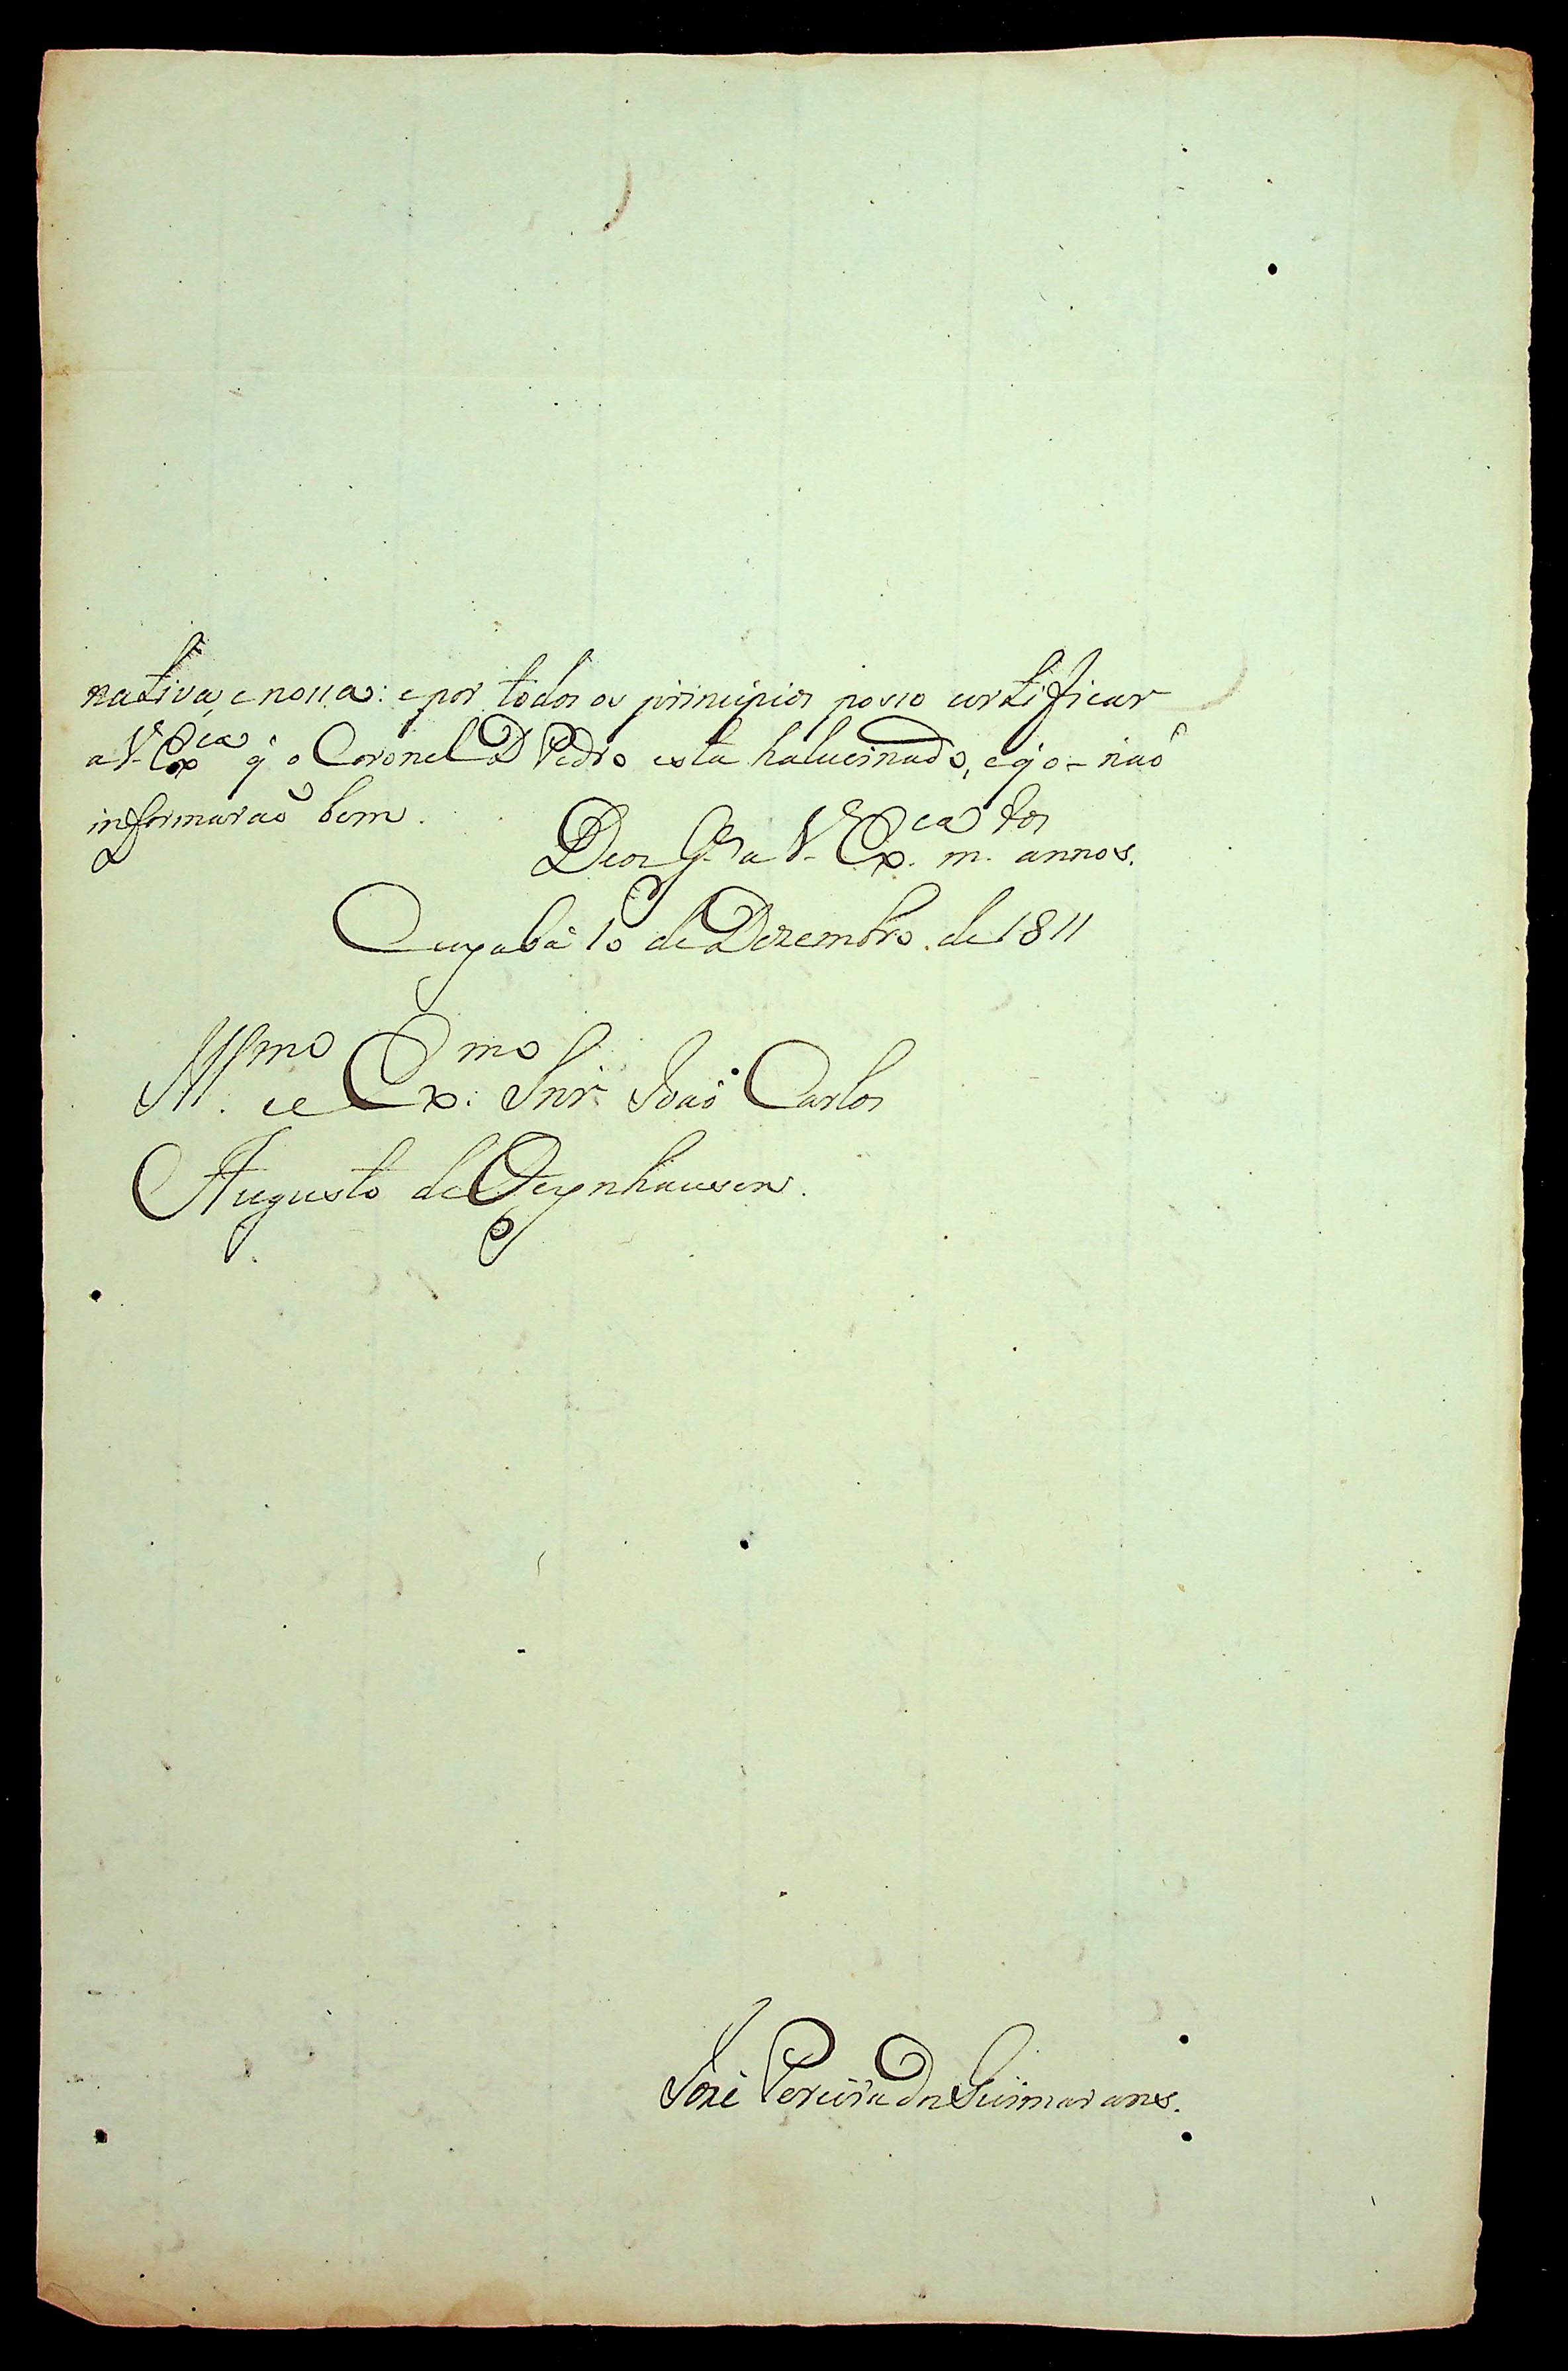 nativa, e nossa: e por todos os principios posso certificar
a V. Ex.ca q̃ o Coronel D Pedro esta halucinado, e q̃ o - naõ
informaraõ bem.
Deos G.e a V. Ex.ca m.tos annos.
Cuyabá 10 de Dezembro de 1811
Ill.mo e Ex.mo Snr. Joaõ Carlos
Augusto de Oeynhausen.
José Pereira dos Guimarans.